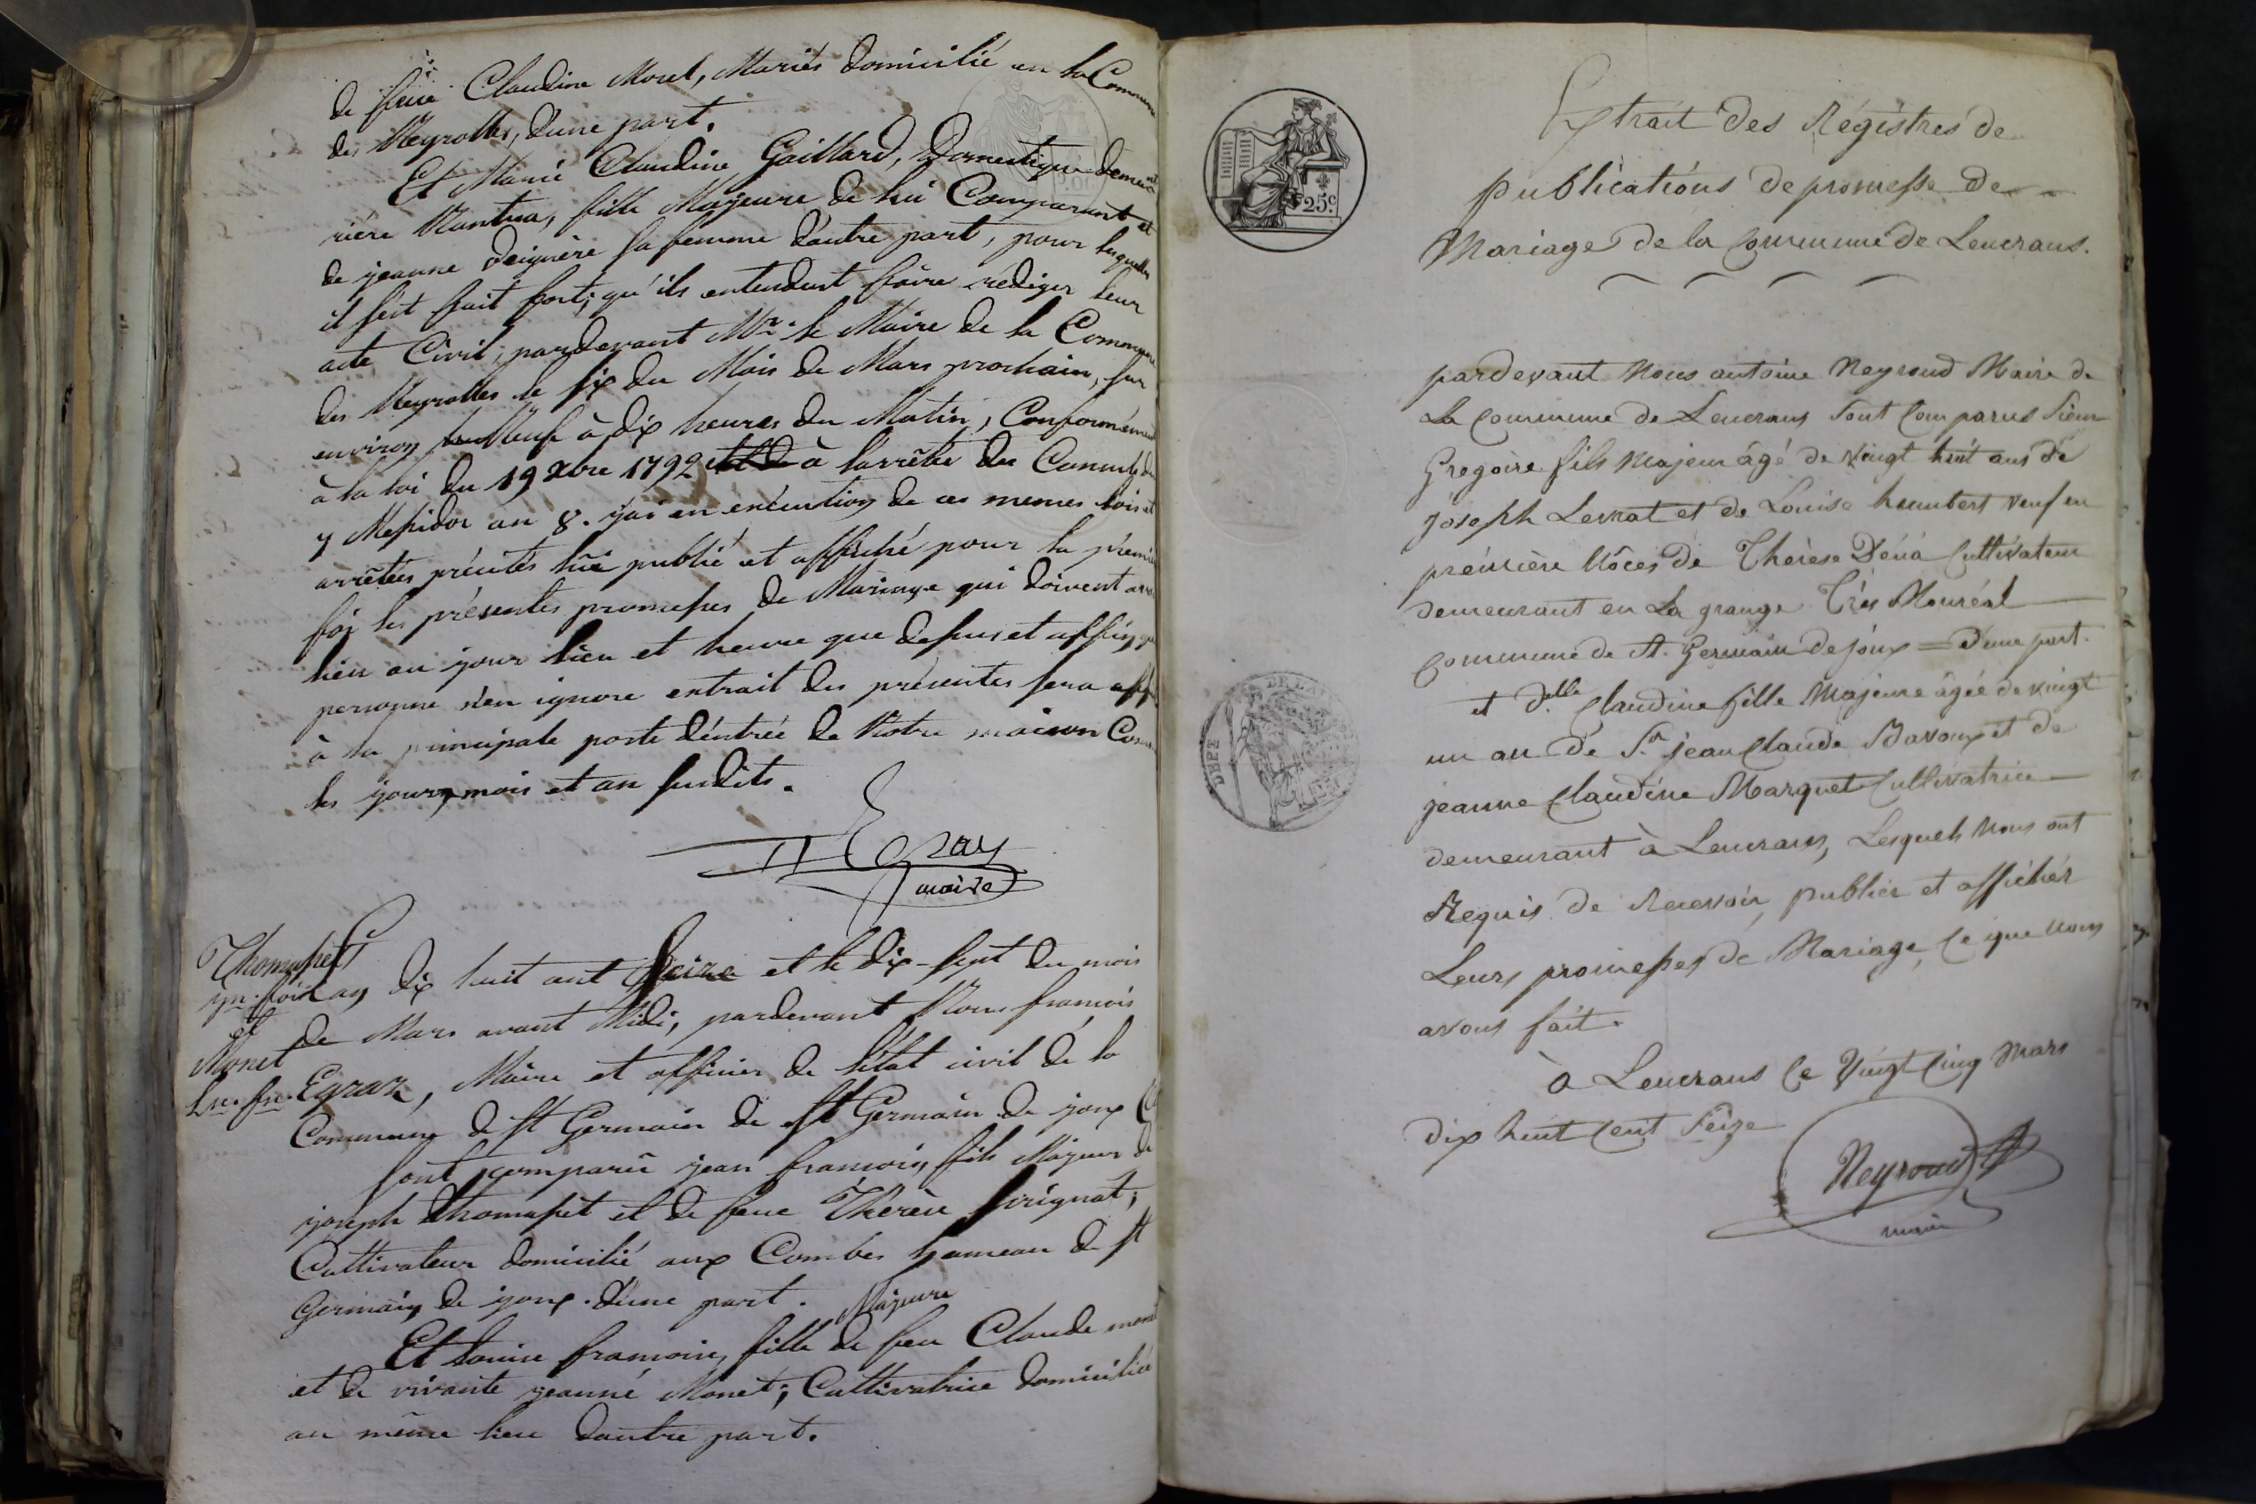 de feüe Claudine Morel, Mariés domicilié en la Commune
des Neyrolles, d'une part.
Et Marie Claudine Gaillard, Domestique demeu
rière Nantua, fille Majeure de lui Comparant et
de jeanne sa femme d'autre part, pour lesquelles
il s'est fait fort; qu'ils entendent faire rédiger leur
acte Civil, pardevant Mr. le Maire de la Commune
des Neyrolles le six du Mois de Mars prochain, sur
environ Neuf à dix heures du Matin, Conformément
à la loi du 19 Xbre 1792 à l'arrêté des Consuls du
7 Messidor an 8. j'ai en exécution de ces memes lois et
arrêtés précités lüe publié et affiché pour la premie
fois les présentes promesses de Mariage qui doivent avoir
lieu au jour lieu et heure que dessus et affin que
personne n'en ignore extrait des présentes sera aff
à la principale porte d'entrée de Notre maison Com
les jour, mois et an susdits.
Egraz
maire
Thomasset
jn. fois
et
Monet
Lse. fse.
L'an dix huit cent Seize et le dix-sept du mois
de Mars avant Midi, pardevant Nous francois
Egraz, Maire et officier de l'état civil de la
Commune de St Germain de St Germain de joux
sont comparü jean francois, fils Majeur de
joseph Thomasset et de feue Thérèse
Cultivateur domicilié aux Combes hameau de St
Germain de joux. d'une part.
Majeure
Et Louise francoise, fille de feu Claude monet
et de vivante jeanne Monet; Cultivatrice domiciliée
au même lieu d'autre part.
Extrait des Régistres de
publicatións de promesse de
Mariage de la Commune de Leucrans.
25c.
pardevant Nous antoine Neyroud Maire de
La Commune de Leucrans Sont Comparus Sieur
Gregoire fils Majeur âgé de Vingt huit ans de
joseph Levrat et de Louise humbert veuf en
première Nôces de Thérèse Cultivateur
demeurant en La grange Très Monréal
Commune de St. Germain de joux = d'une part.
et d.elle Claudine fille Majeure âgée de vingt
un an de Sr jean Claude Bavoux et de
jeanne Claudine Marquet Cultivatrice
demeurant à Leucrans, Lesquels Nous ont
Requis de Recevoir, publier et afficher
Leurs promesses de Mariage, Ce que nous
avons fait.
à Leucrans Ce Vingt Cinq Mars
dix huit Cent Seize
Neyroud
maire